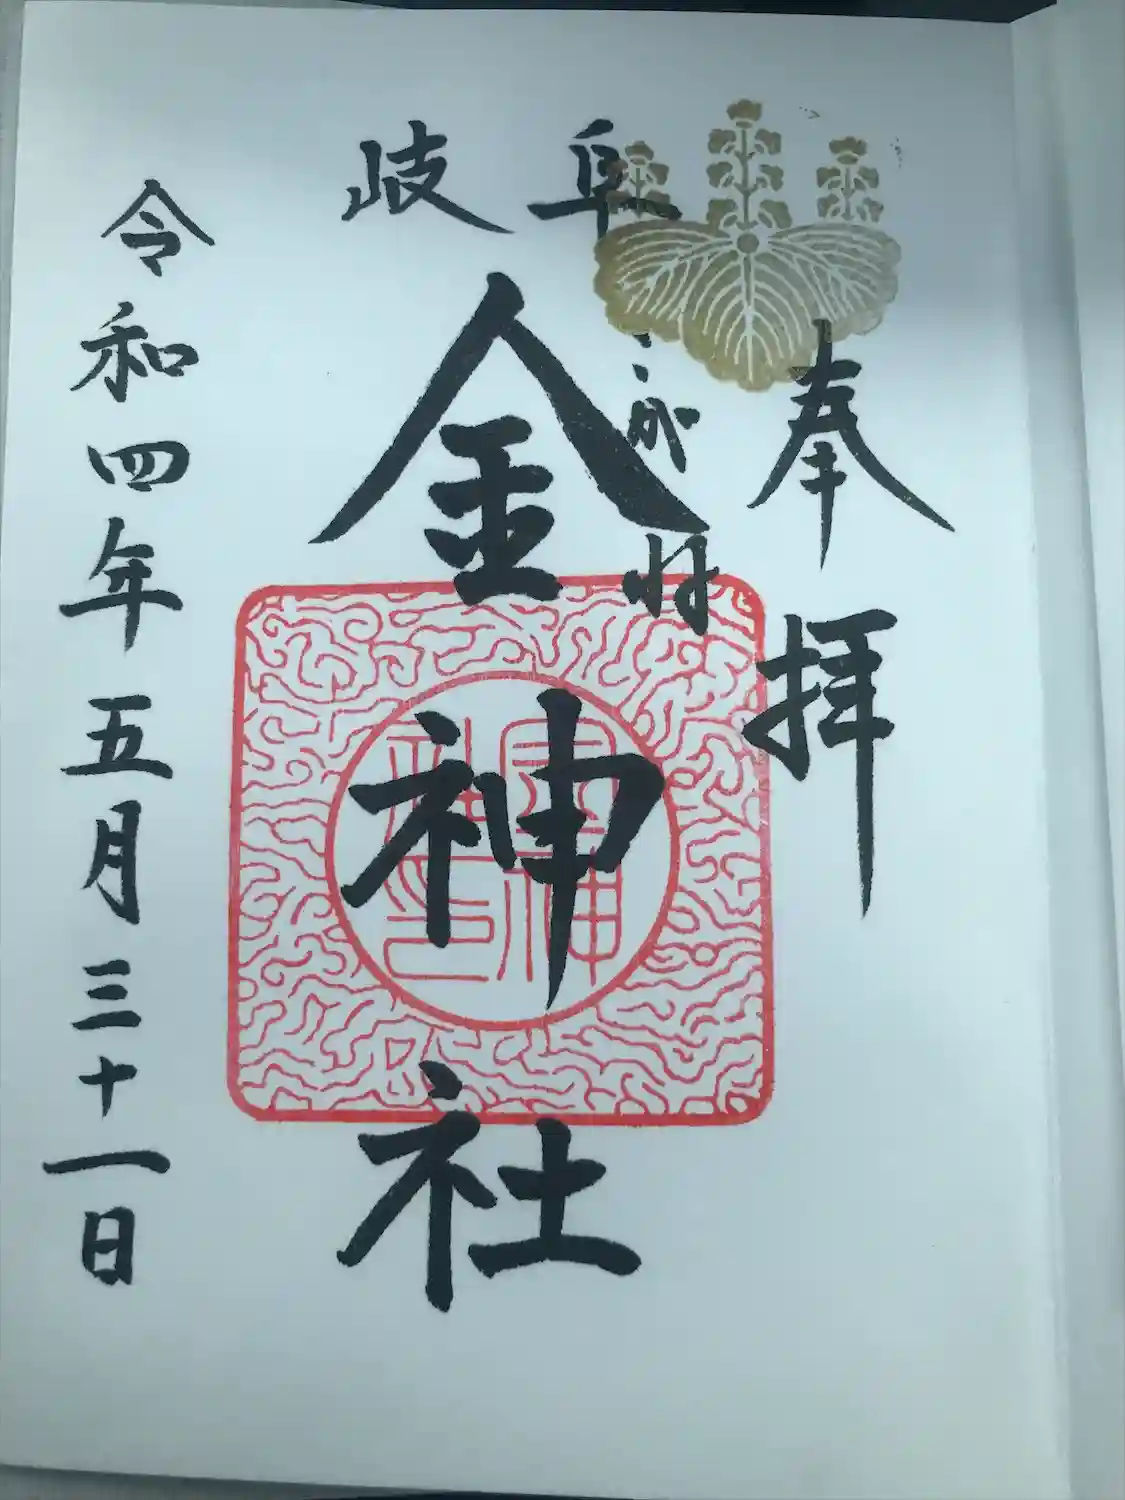 奉拝
岐阜
こがね
金神社
令和四年五月三十一日